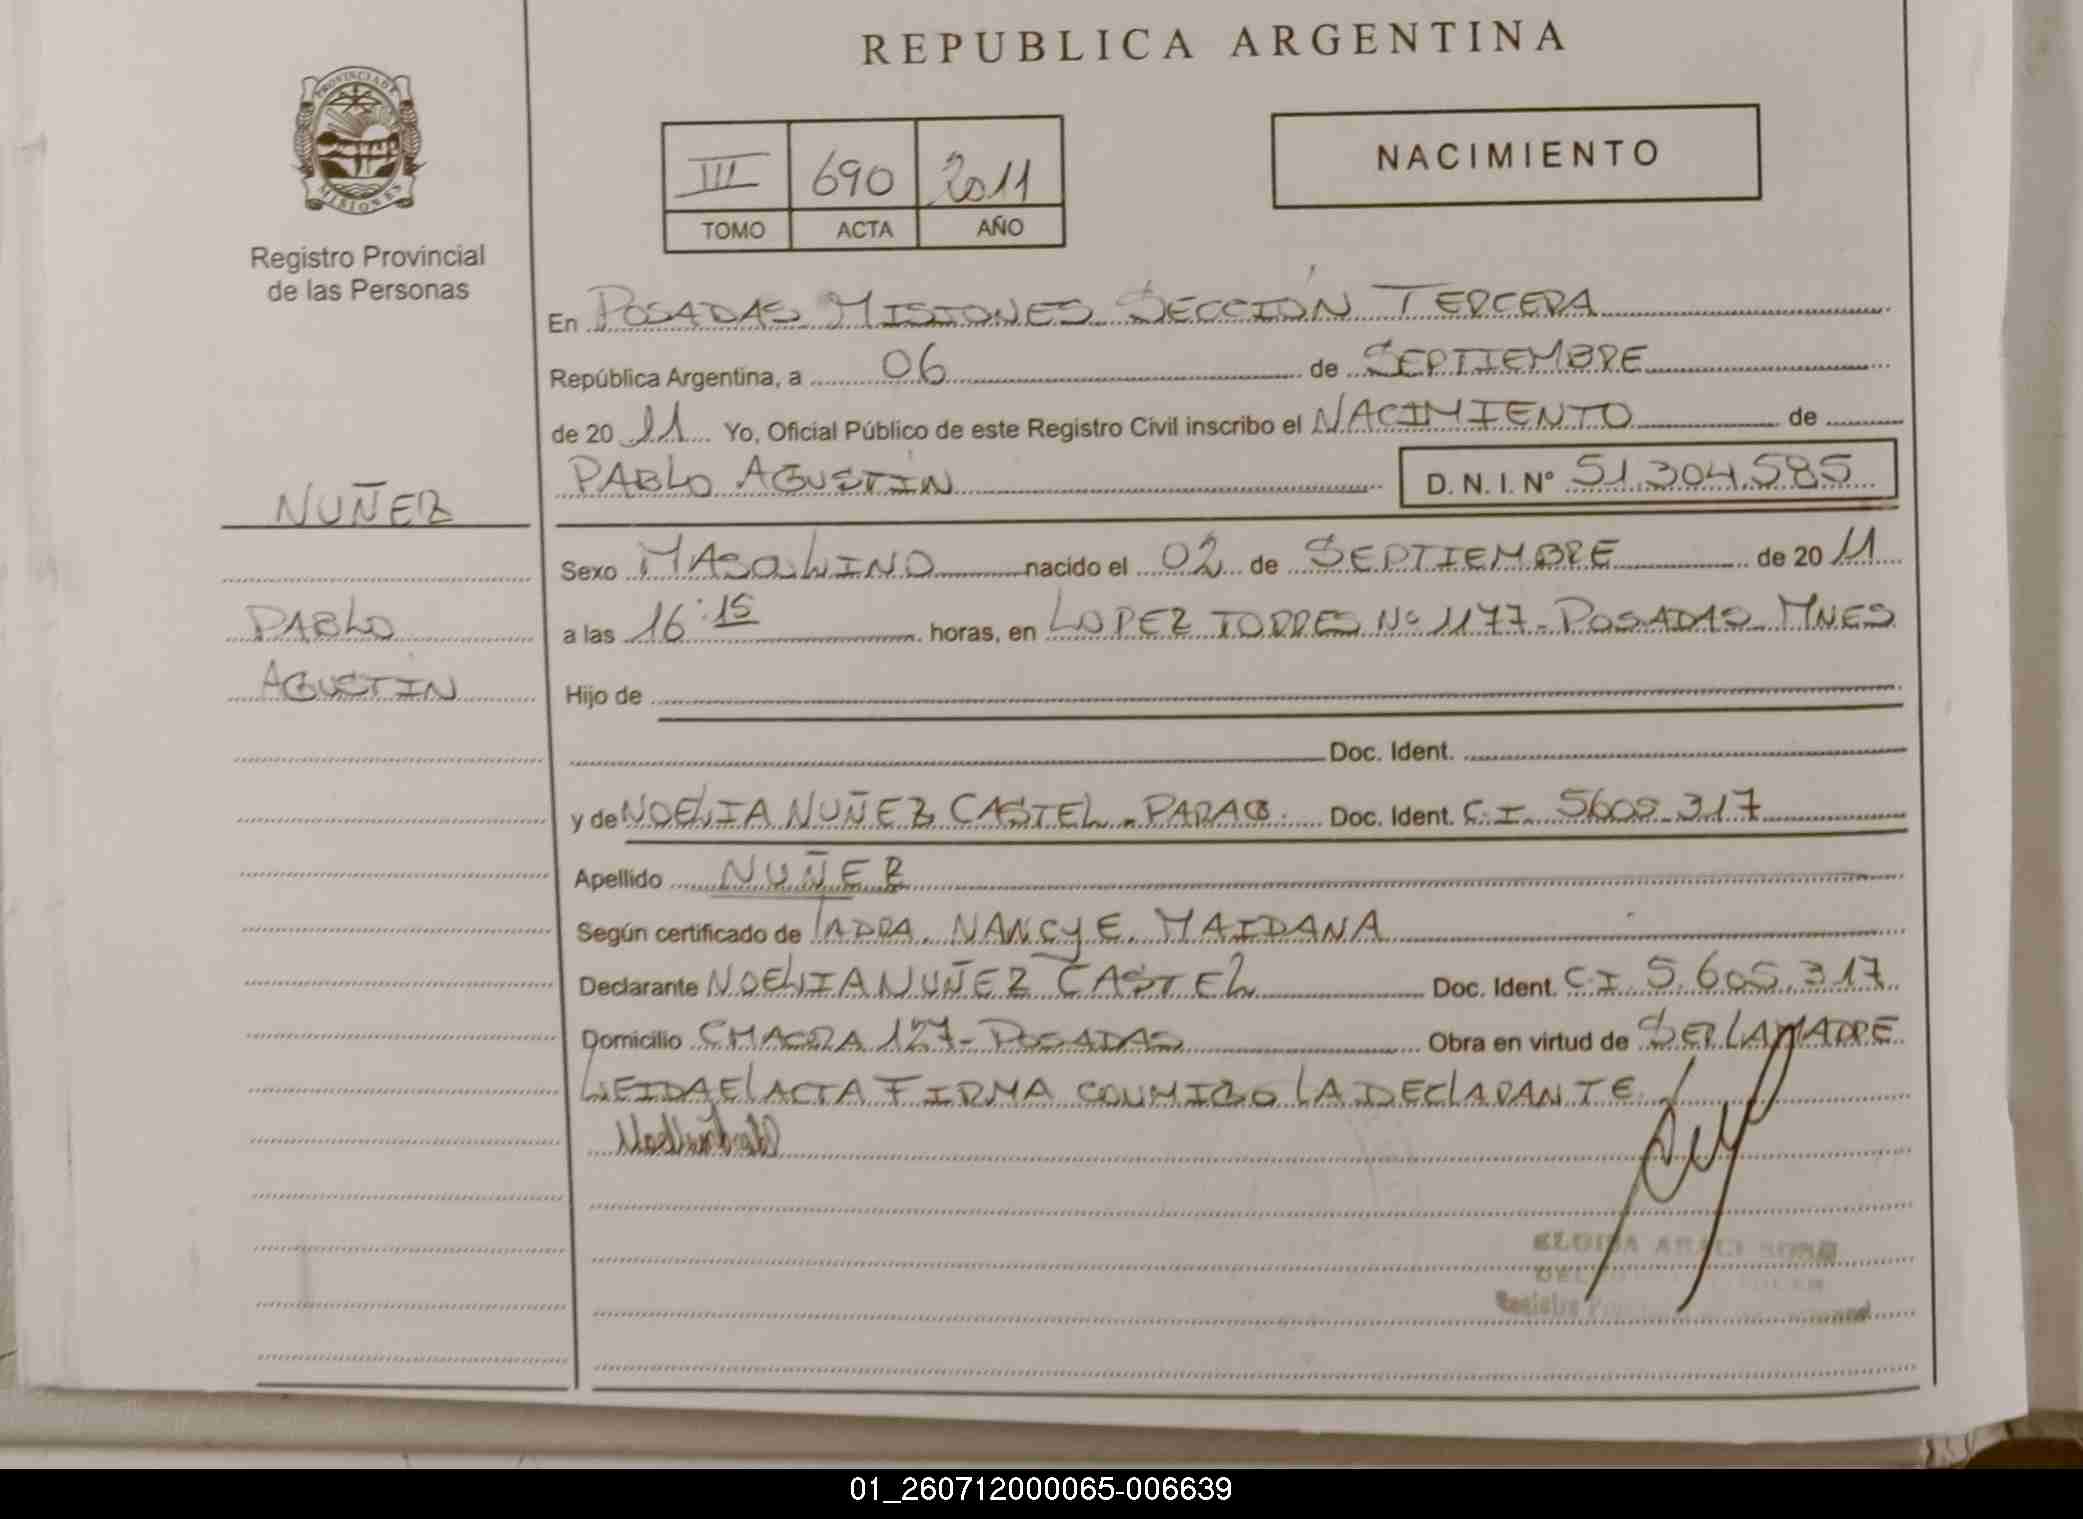 REPUBLICA ARGENTINA
PROVINCIA DE
MISIONES
Registro Provincial
de las Personas
III 690 2011
TOMO ACTA AÑO
NACIMIENTO
En POSADAS MISIONES SECCIÓN TERCERA
República Argentina, a 06 de SEPTIEMBRE
de 20 11 Yo, Oficial Público de este Registro Civil inscribo el NACIMIENTO de
PABLO AGUSTÍN D. N. I. Nº 51.304.585
NUÑEZ
PABLO
AGUSTIN
Sexo MASCULINO nacido el 02 de SEPTIEMBRE de 20 11
a las 16:15 horas, en LOPEZ TORRES Nº 1177-POSADAS MNES
Hijo de
Doc. Ident.
y de NOELIA NUÑEZ CASTEL - PARAG. Doc. Ident. C.I. 5605.317
Apellido NUÑEZ
Según certificado de LA DRA. NANCY E. MAIDANA
Declarante NOELIA NUÑEZ CASTEL Doc. Ident. C.I 5.605.317
Domicilio CHACRA 127-POSADAS Obra en virtud de SER LA MADRE
LEIDA EL ACTA FIRMA CONMIGO LA DECLARANTE
ELOISA
Registro
01_260712000065-006639